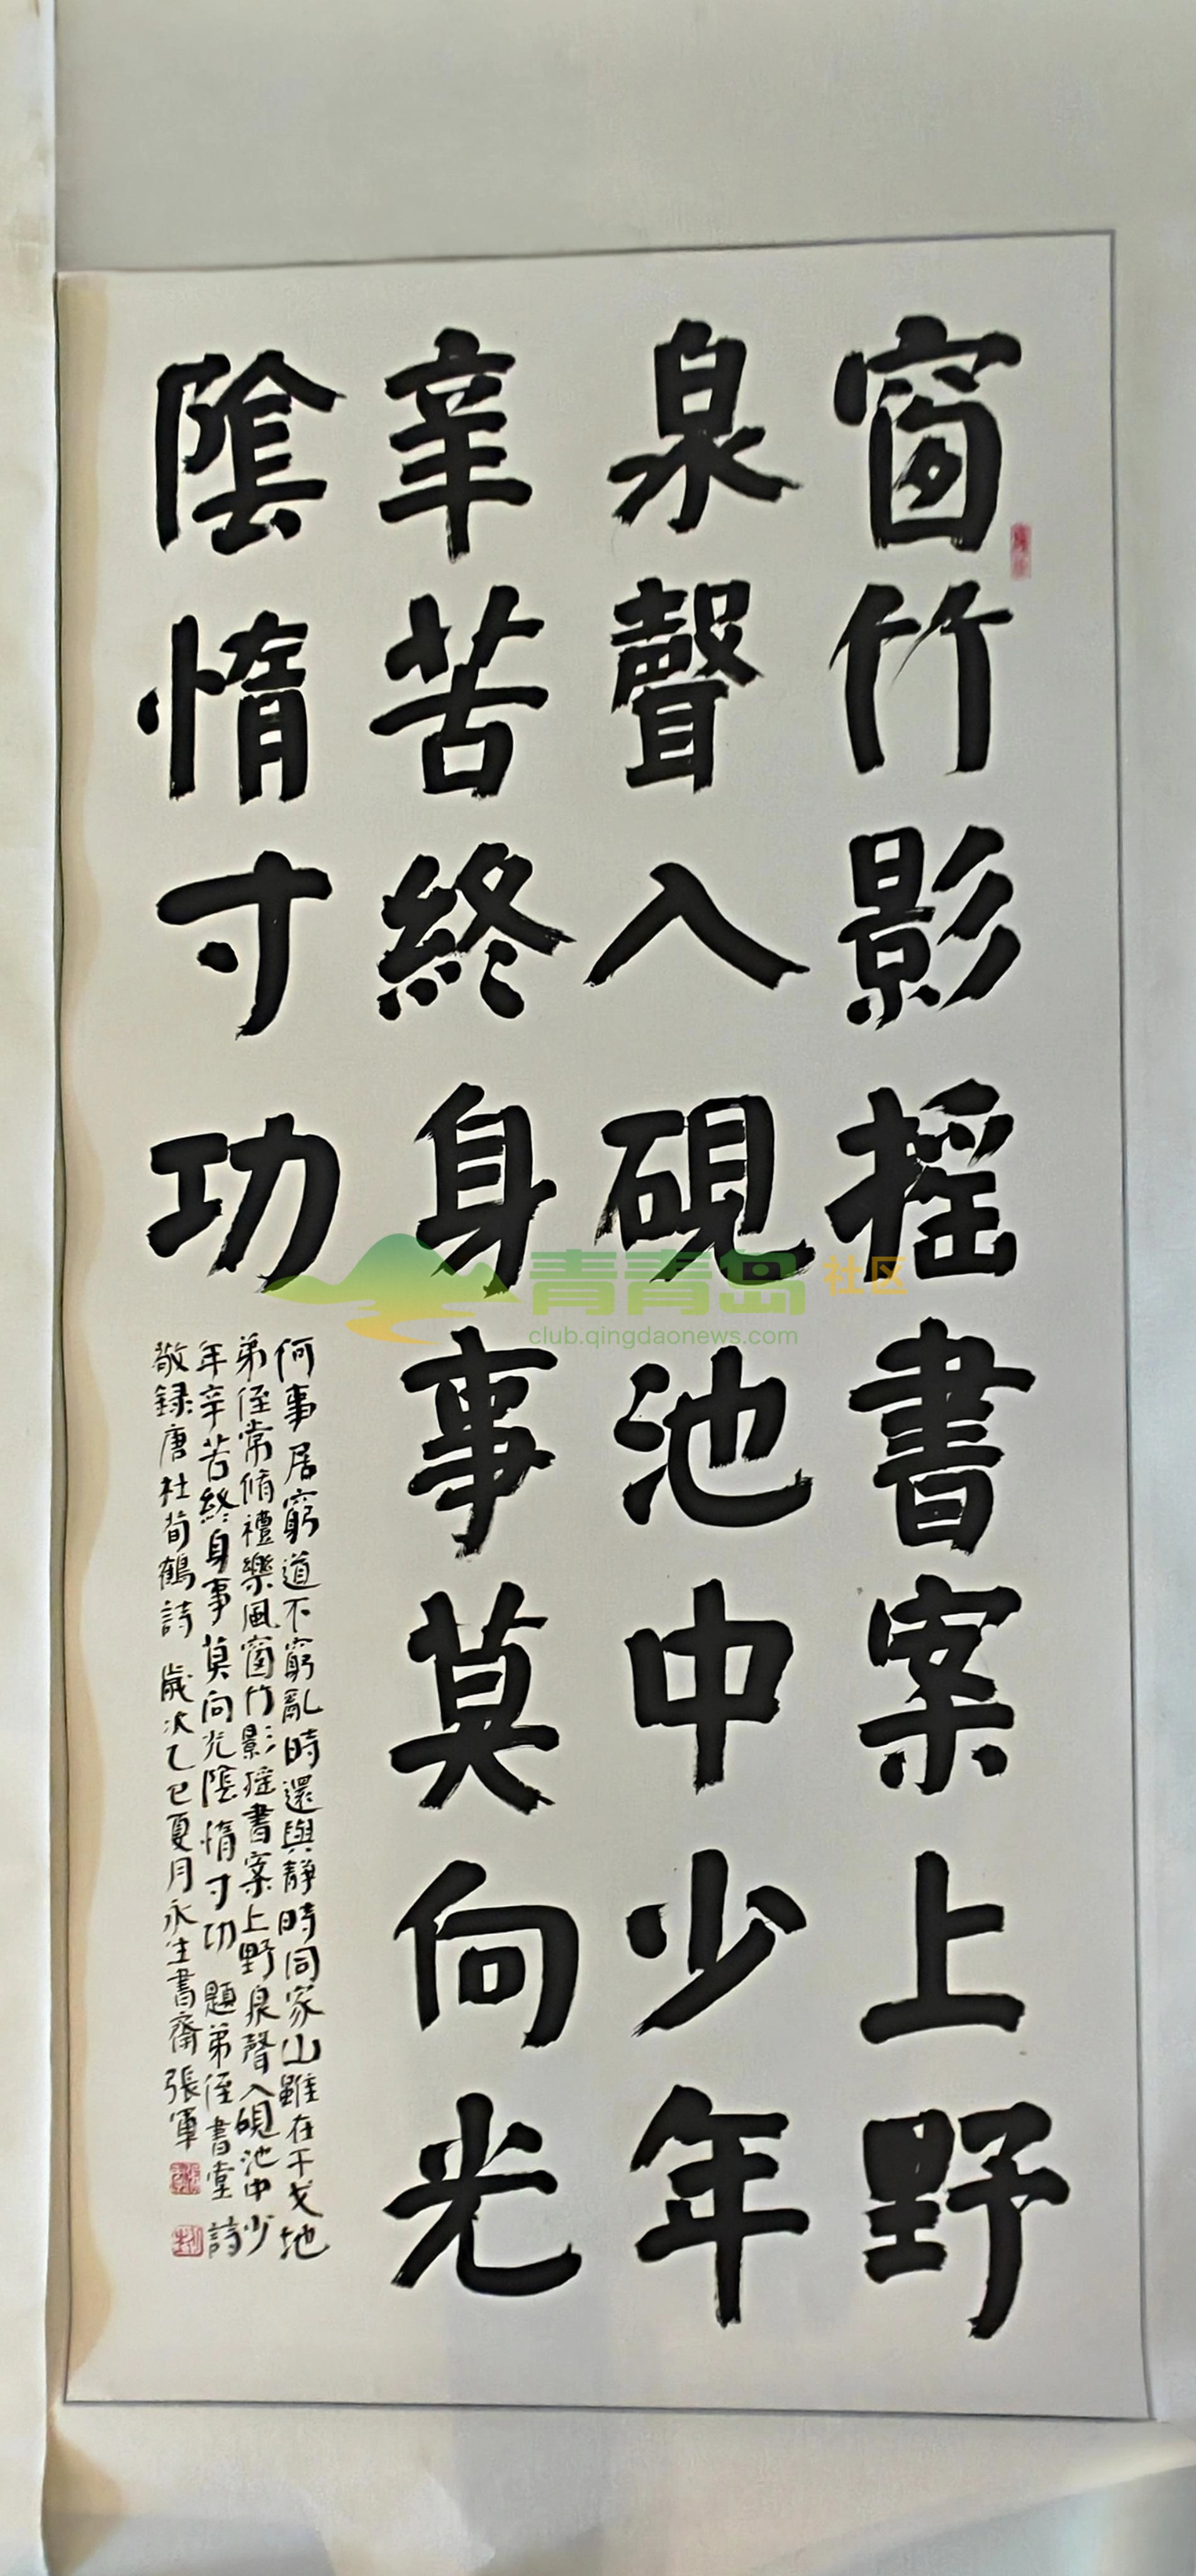 窗竹影摇書案上野
泉聲入硯池中少年
辛苦終身事莫向光
陰惰寸功
何事居窮道不窮亂時還與靜時同家山雖在干戈地
弟侄常脩禮樂風窗竹影摇書案上野泉聲入硯池中少
年辛苦終身事莫向光陰惰寸功 題弟侄書堂 詩
敬録唐杜荀鶴詩 歲次乙巳夏月永生書齋張軍
青青岛社区
club.qingdaonews.com